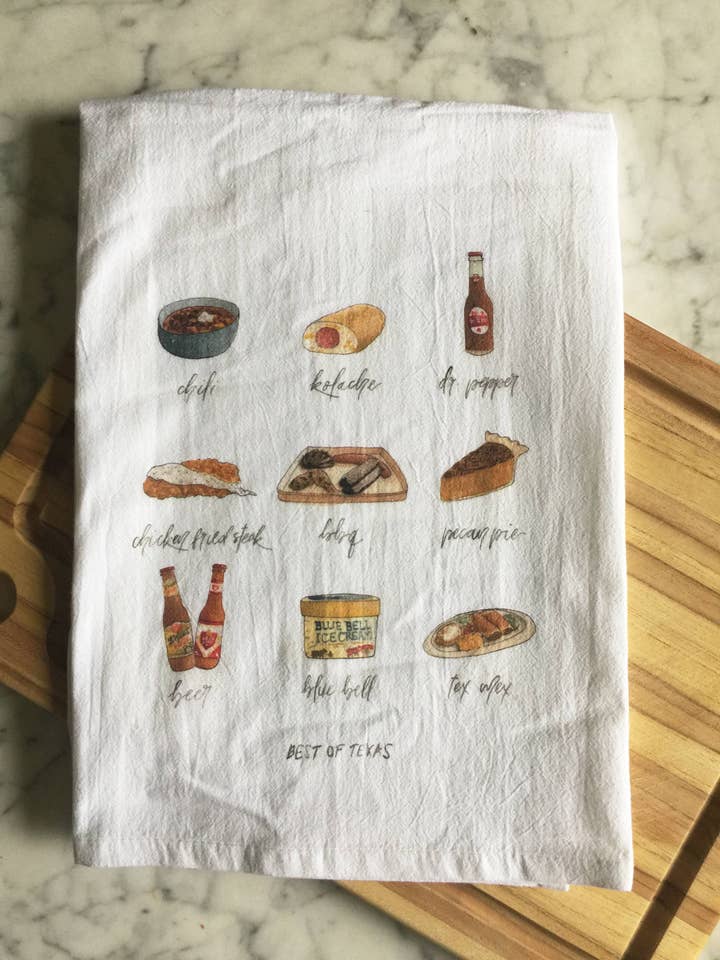 chili kolache dr. pepper
chicken fried steak bbq pecan pie
BLUE BELL
ICE CREAM
beer blue bell tex mex
BEST OF TEXAS